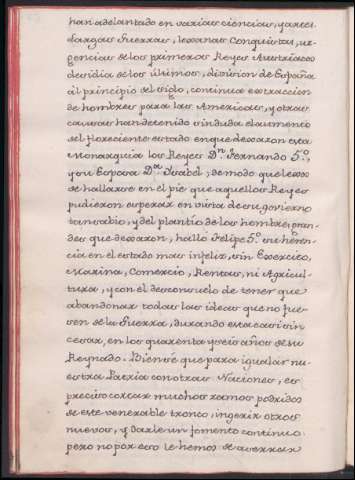 han adelantado en varias ciencias, y artes.
Largas Guerras, lexanas Conquistas, ur-
gencias de los primeros Reyes Austriacos
desidia de los últimos, division de España
al principio del siglo, continua extraccion
de hombres para las Americas, y otras
causas han detenido sin duda el aumento
del floreciente estado en que dexaron esta
Monarquia los Reyes Dn. Fernando 5.º,
y su Esposa Dª. Isabel; de modo que lexos
de hallarse en el pie que aquellos Reyes
pudieron esperar en vista de su govierno
tan sabio, y del plantio de los hombres gran-
des que dexaron, halló Felipe 5.º su heren-
cia en el estado mas infeliz, sin Exercito,
Marina, Comercio, Rentas, ni Agricul-
tura, y con el desconsuelo de tener que
abandonar todas las ideas que no fue-
sen de la Guerra, durando esta casi sin
cesar, en los quarenta y seis años de su
Reynado. Bien sé que para igualar nu-
estra Patria con otras Naciones, es
preciso cortar muchos ramos podridos
de este venerable tronco, ingerir otros
nuevos, y darle un fomento continuo:
pero no por eso le hemos de aserrar